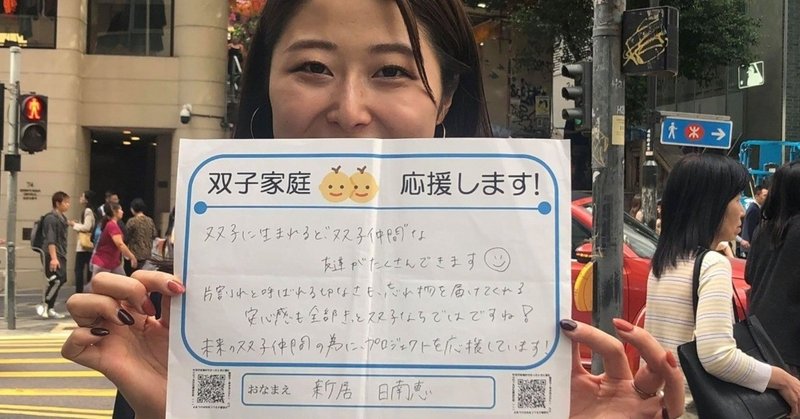 双子家庭 応援します!
双子に生まれると双子仲間な
友達がたくさんできます
片割れと呼ばれる切なさも、忘れ物を届けてくれる
安心感も全部きっと双子ならではですね!
未来の双子仲間の為に、プロジェクトを応援しています!
おなまえ 新居 日南恵